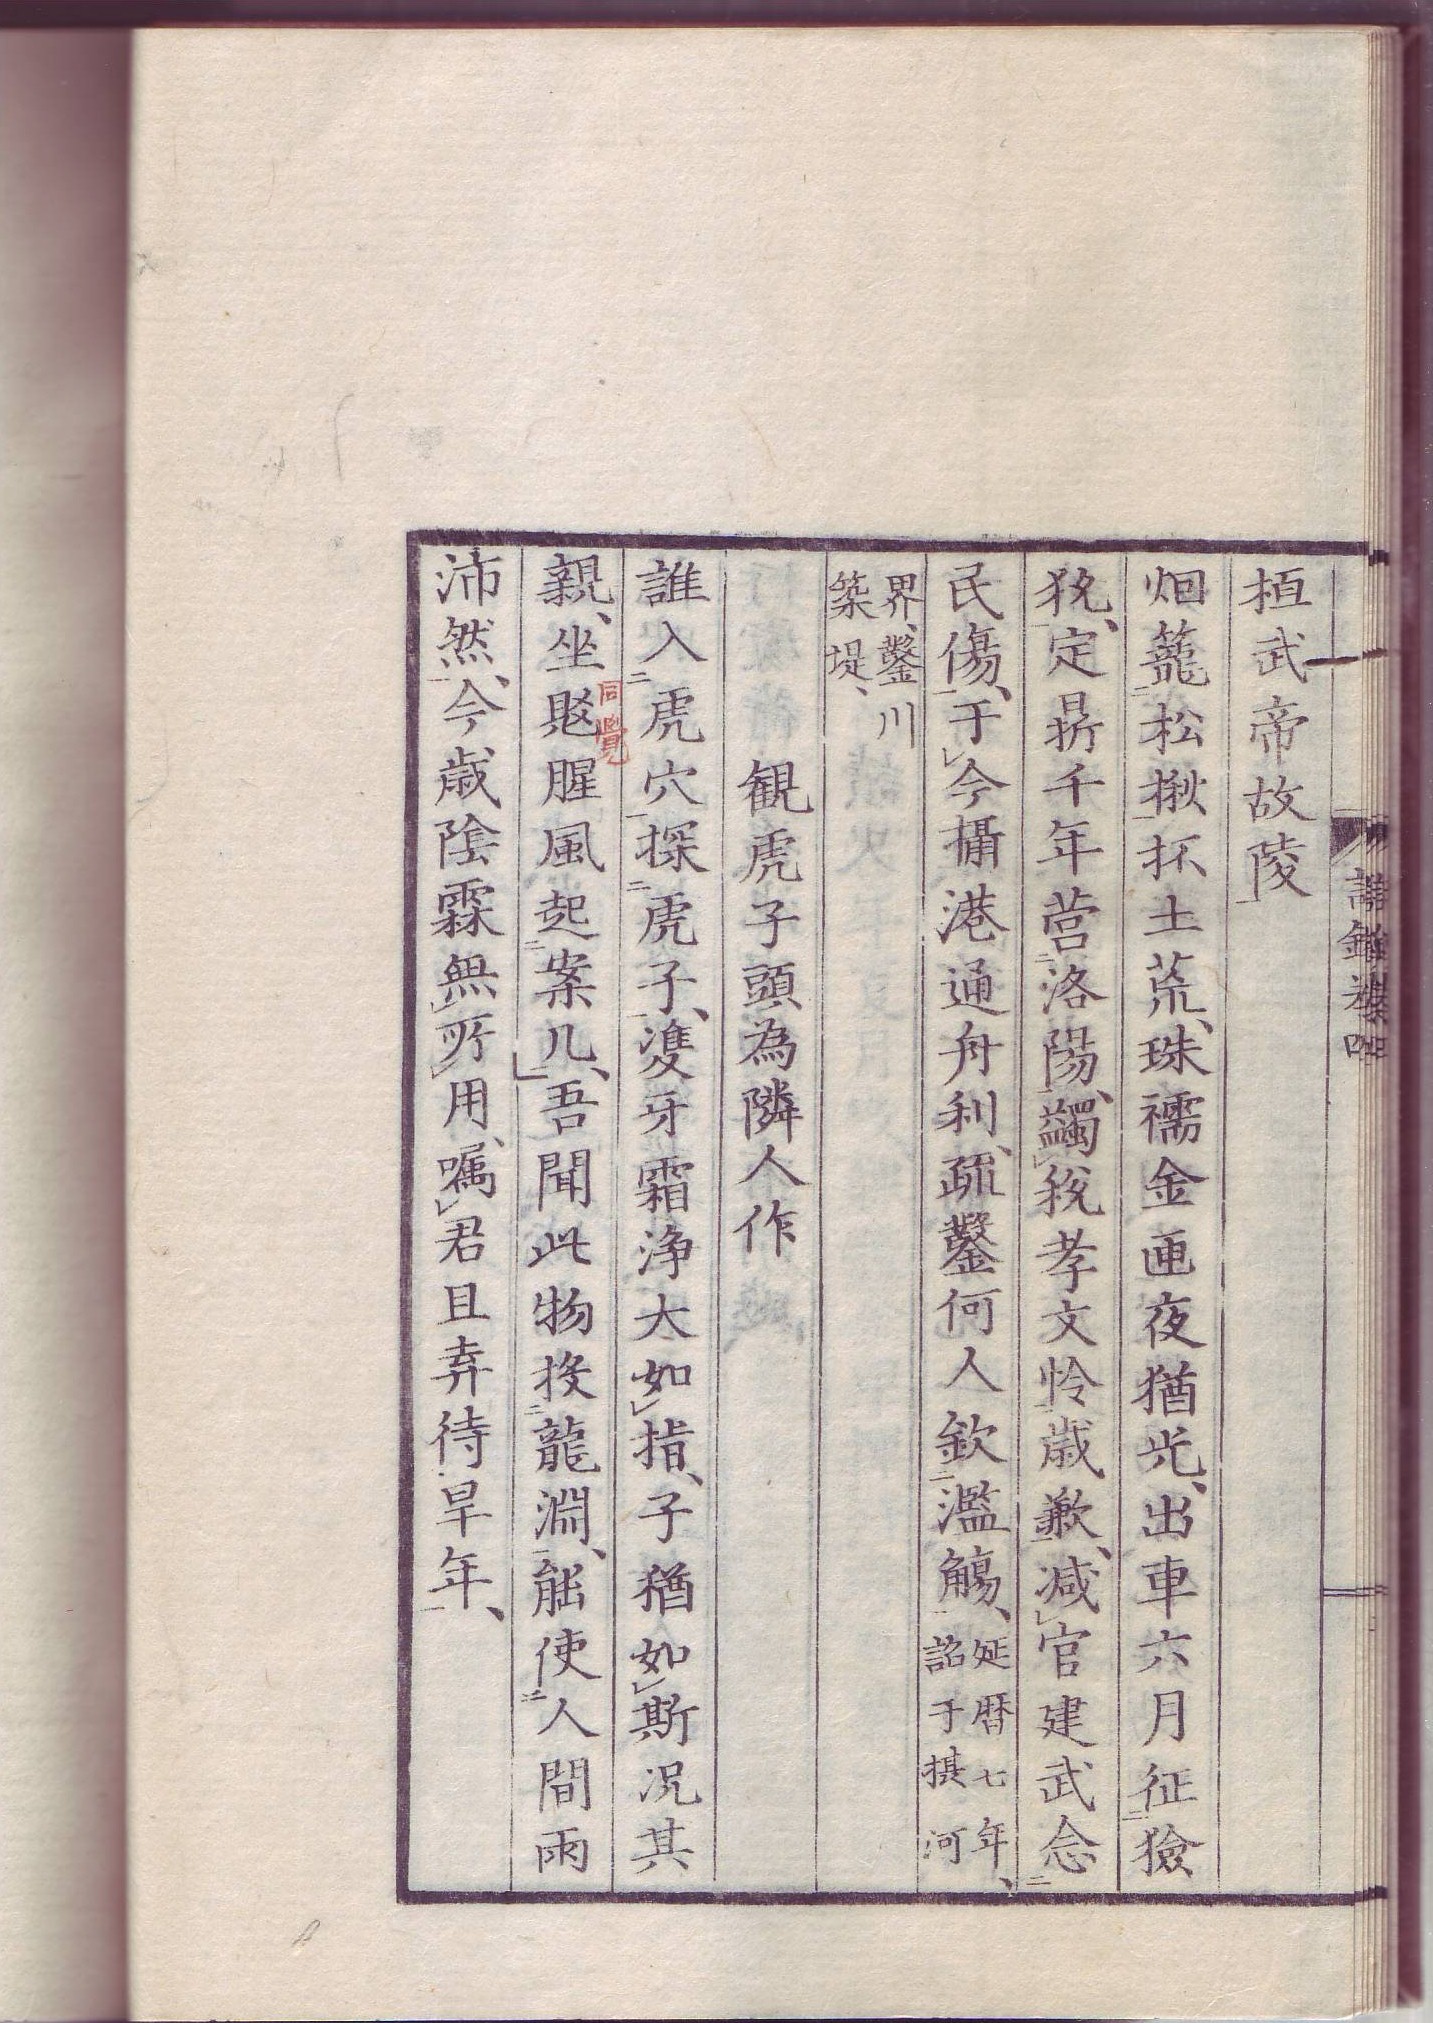 桓武帝故陵
烟籠松楸抔土荒、珠襦金匣夜猶光、出車六月征獫
狁、定鼎千年営洛陽、蠲税孝文怜歳歉、減官建武念
民傷、于今攝港通舟利、疏鑿何人欽濫觴、延暦七年、詔于摂河
界、鑿川築堤、
観虎子頭為隣人作
誰入虎穴探虎子、雙牙霜浄大如指、子猶如斯况其
親、坐覐腥風起案几、吾聞此物投龍淵、能使人間雨
沛然、今歳陰霖無所用、嘱君且弆待旱年、
同覺